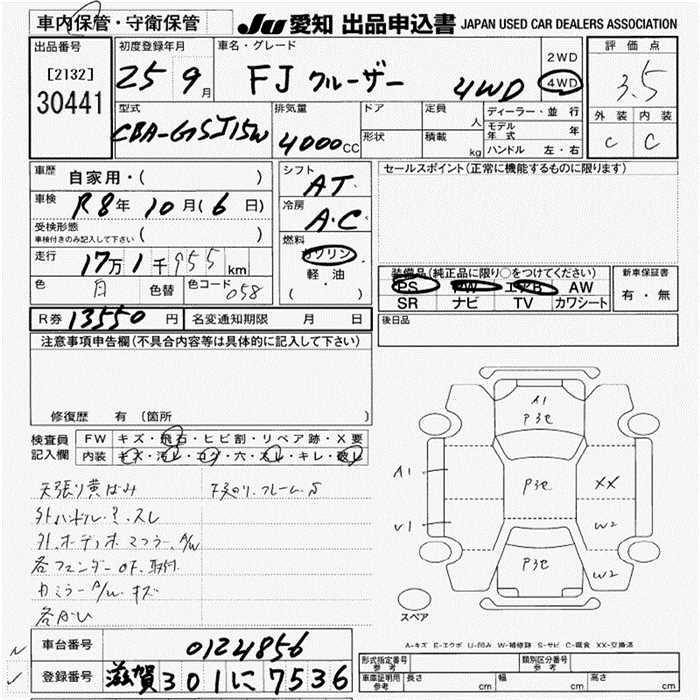 車内保管・守衛保管
JU 愛知 出品申込書 JAPAN USED CAR DEALERS ASSOCIATION
出品番号
[2132]
30441
初度登録年月
25 9月
車名・グレード
FJ クルーザー 4WD
2WD
4WD
評価点
3.5
外装 内装
C C
型式
CBA-GSJ15W
排気量
4000CC
ドア
形状
定員 人
積載 kg
ディーラー・並行
モデル年式 年
ハンドル 左・右
車歴
自家用・( )
車検
R8年 10月(6日)
受検形態
車検付きのみ記入して下さい ( )
走行
17万1千955km
色
色替
色コード 058
シフト
AT
冷房
A.C
燃料
ガソリン
軽油
( )
セールスポイント(正常に機能するものに限ります)
装備品(純正品に限り〇をつけてください)
PS PW エアB AW
SR ナビ TV カワシート
新車保証書
有・無
後日品
R券 13550円
名変通知期限 月 日
注意事項申告欄(不具合内容等は具体的に記入して下さい)
修復歴 有(箇所
検査員記入欄
FW キズ・飛石・ヒビ割・リペア跡・X要
内装 キズ・汚レ・コゲ・穴・スレ・キレ・破レ
天張り黄ばみ
下廻り.フレーム.S
外ハンドル.キ.スレ
外.オーディオ マフラー.A/W
各フェンダーOF.取付
カミラーA/W.キズ
A1
P3セ
A1
P3セ
XX
U1
W2
P3セ
W2
スペア
A-キズ E-エクボ U-凹み W-補修跡 S-サビ C-腐食 XX-交換済
車台番号
0124856
登録番号
滋賀301に7536
形式指定番号 参考
類別区分番号 参考
車庫証明用 参考
長さ cm
幅 cm
高さ cm